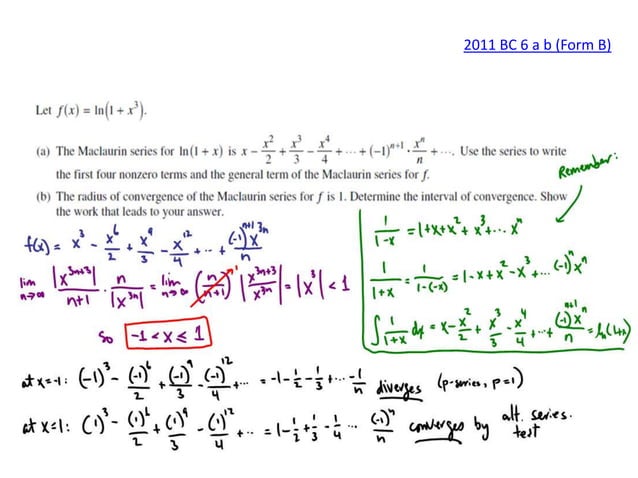 2011 BC 6 a b (Form B)
Let f(x) = ln(1 + x³).
(a) The Maclaurin series for ln(1 + x) is x − x²/2 + x³/3 − x⁴/4 + ⋯ + (−1)ⁿ⁺¹ · xⁿ/n + ⋯. Use the series to write
the first four nonzero terms and the general term of the Maclaurin series for f.
(b) The radius of convergence of the Maclaurin series for f is 1. Determine the interval of convergence. Show
the work that leads to your answer.
f(x) = x³ − x⁶/2 + x⁹/3 − x¹²/4 + ⋯ + (−1)ⁿ⁺¹x³ⁿ/n
lim n→∞ |x³ⁿ⁺³|/n+1 · n/|x³ⁿ| = lim n→∞ (n/n+1)¹ |x³ⁿ⁺³/x³ⁿ| = |x³| < 1
so -1 < x ≤ 1
Remember:
1/1-x = 1+x+x²+x³+⋯xⁿ
1/1+x = 1/1-(-x) = 1-x+x²-x³+⋯(-1)ⁿxⁿ
∫ 1/1+x dx = x - x²/2 + x³/3 - x⁴/4 + ⋯ + (-1)ⁿ⁺¹xⁿ/n = ln(1+x)
at x=-1: (-1)³ - (-1)⁶/2 + (-1)⁹/3 - (-1)¹²/4 + ⋯ = -1 - 1/2 - 1/3 + ⋯ -1/n diverges (p-series, p=1)
at x=1: (1)³ - (1)⁶/2 + (1)⁹/3 - (1)¹²/4 + ⋯ = 1 - 1/2 + 1/3 - 1/4 ⋯ (-1)ⁿ/n converges by alt. series test